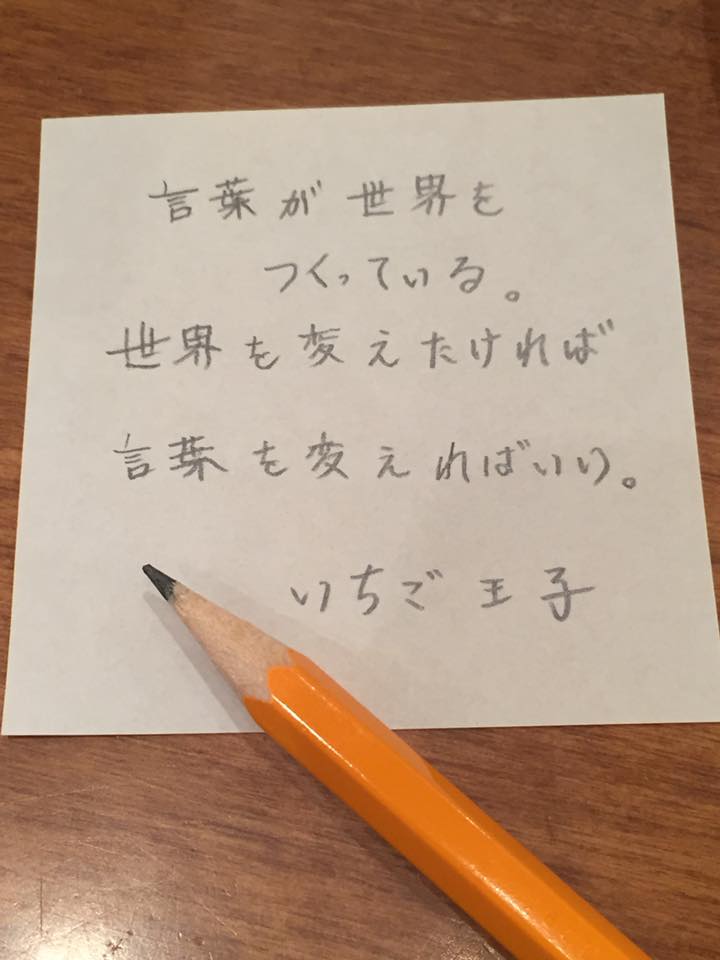 言葉が世界を
つくっている。
世界を変えたければ
言葉を変えればいい。
いちご王子